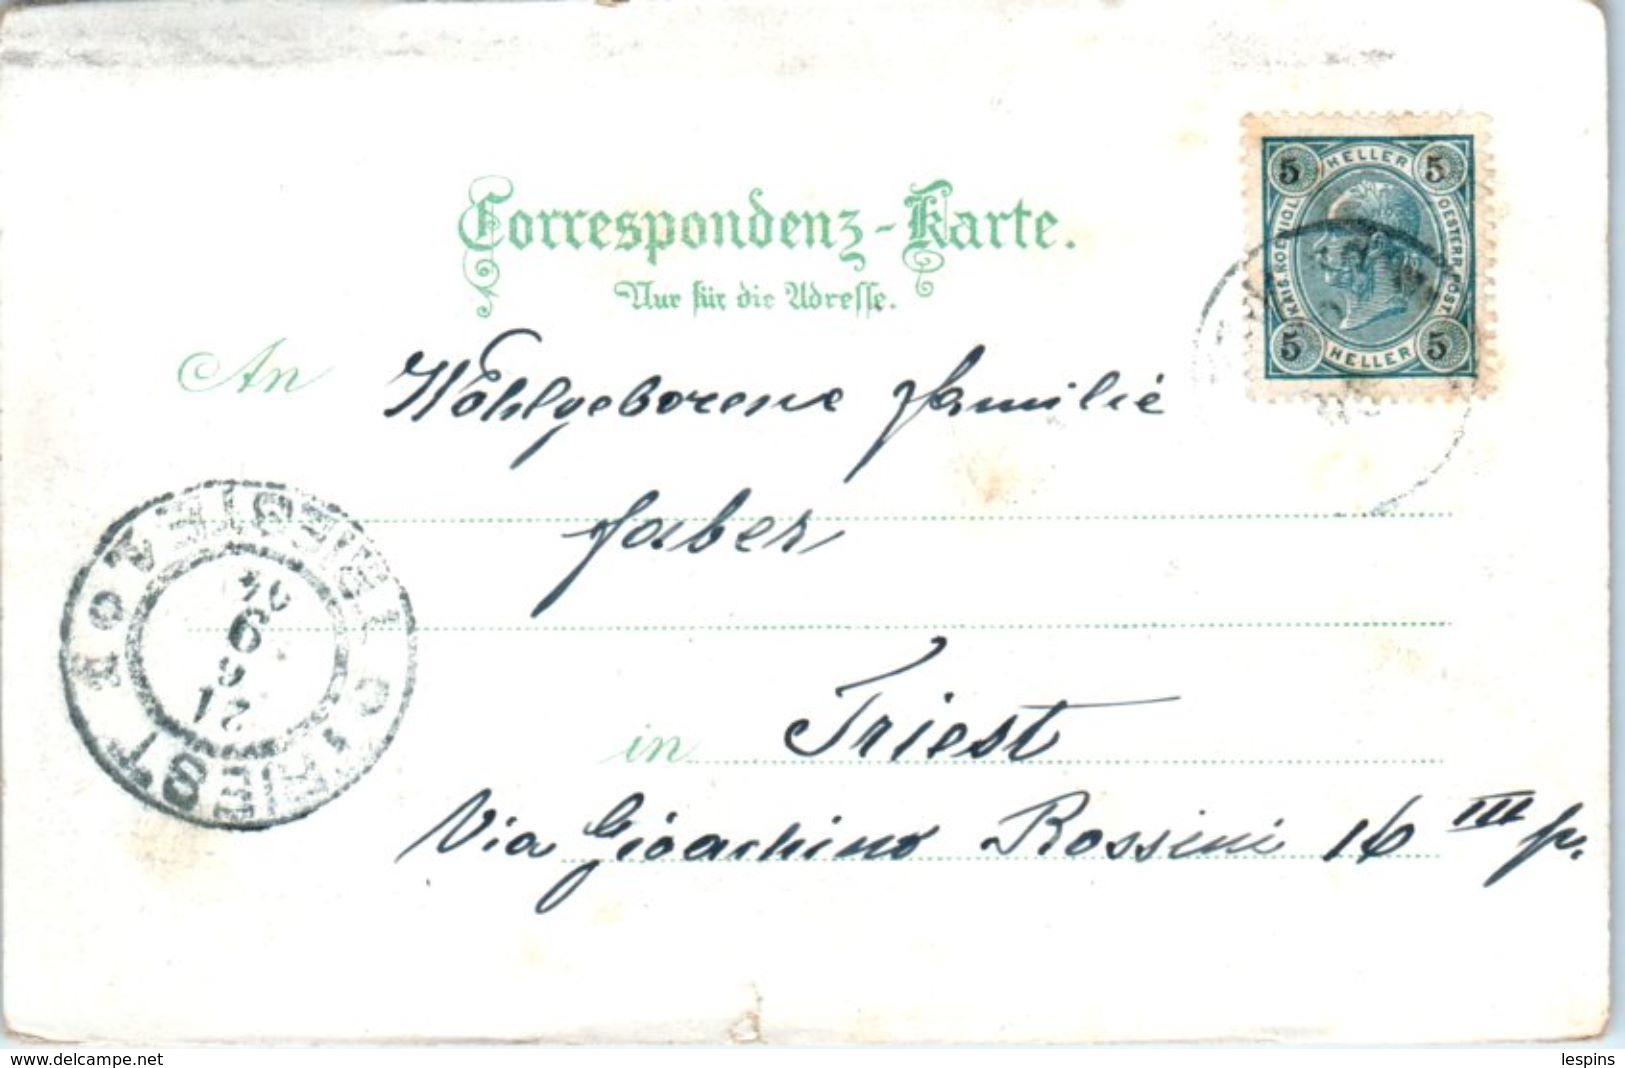 Correspondenz-Karte.
Nur für die Adresse.
5 HELLER 5
KAIS. KOENIGL. OESTERR. POST.
5 HELLER 5
An Wohlgeborene Familie
Faber
in Triest
Via Gioachino Rossini 16 III p.
TRIEST TRIESTE
21
9
04
www.delcampe.net
lespins